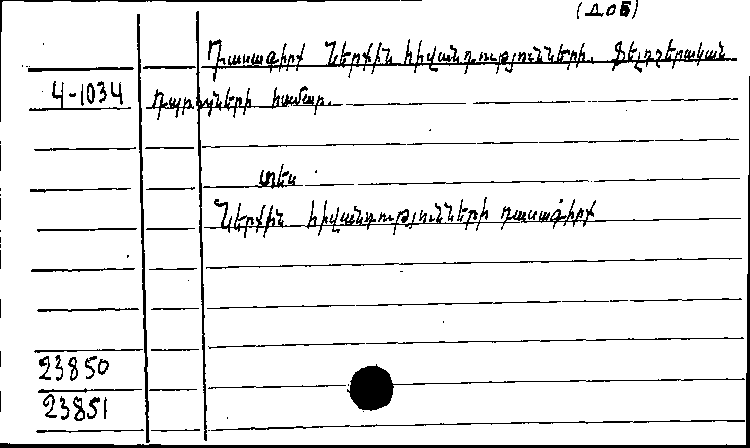 (ДОБ)
Դասագիրք Ներքին հիվանդությունների. Ֆելդշերական
4-1034 դպրոցների համար.
տես
Ներքին հիվանդությունների դասագիրք
23850
23851